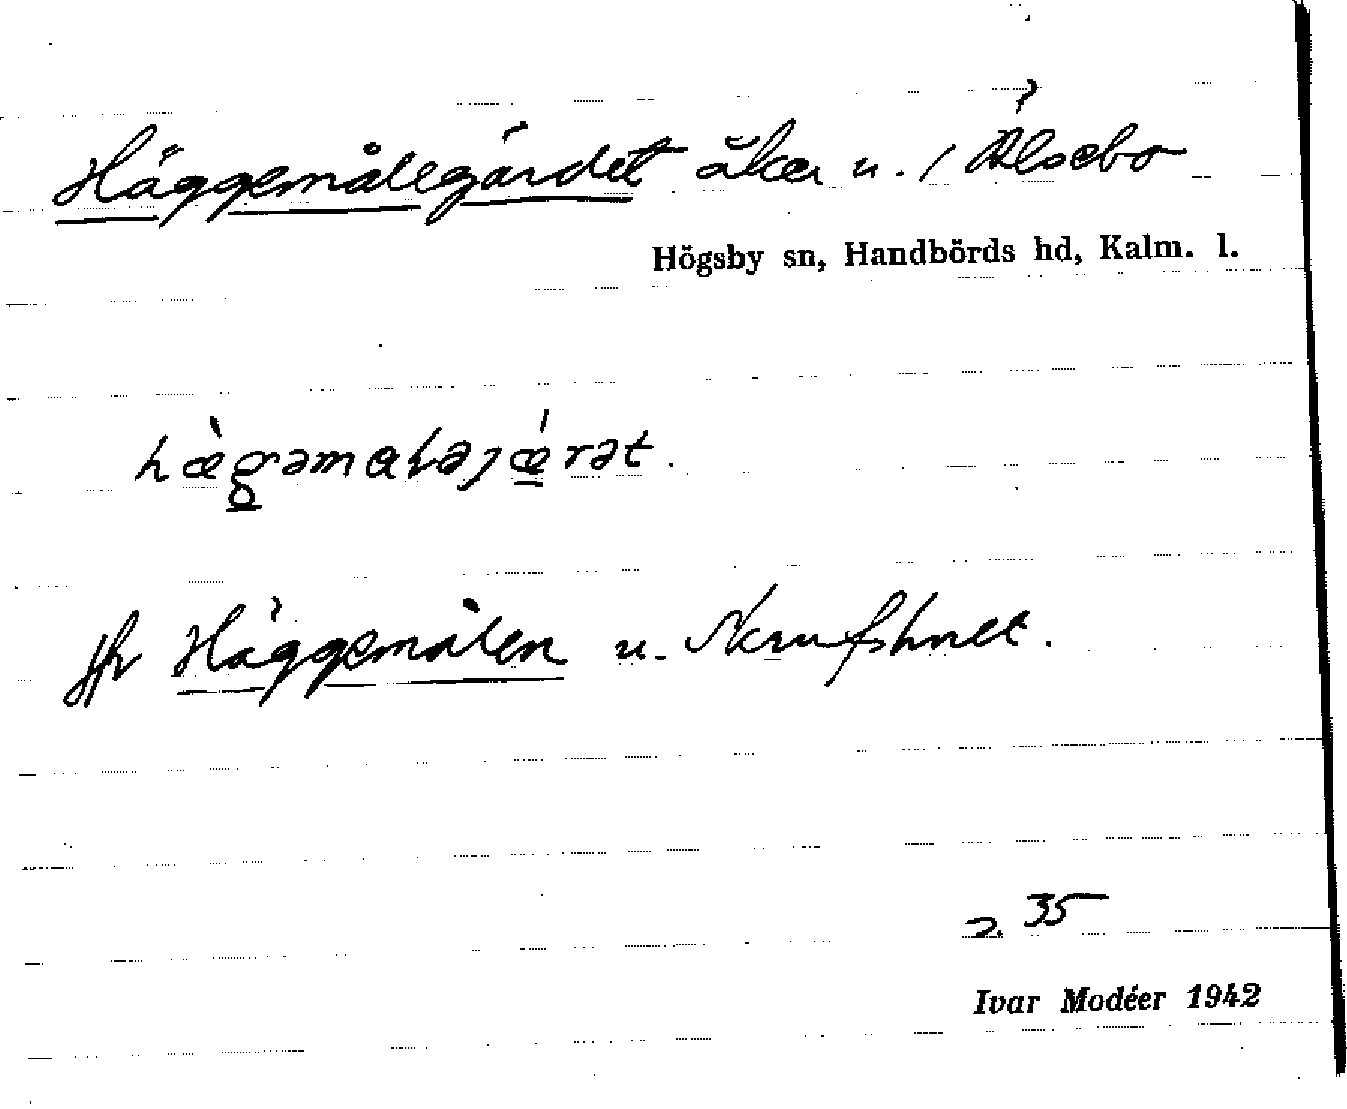 Häggemålegärdet åker u. / Älsebo
Högsby sn, Handbörds hd, Kalm. l.
hæ̀gəmaləjǽrət.
Jfr Häggemålen u.
2. 35
Ivar Modéer 1942